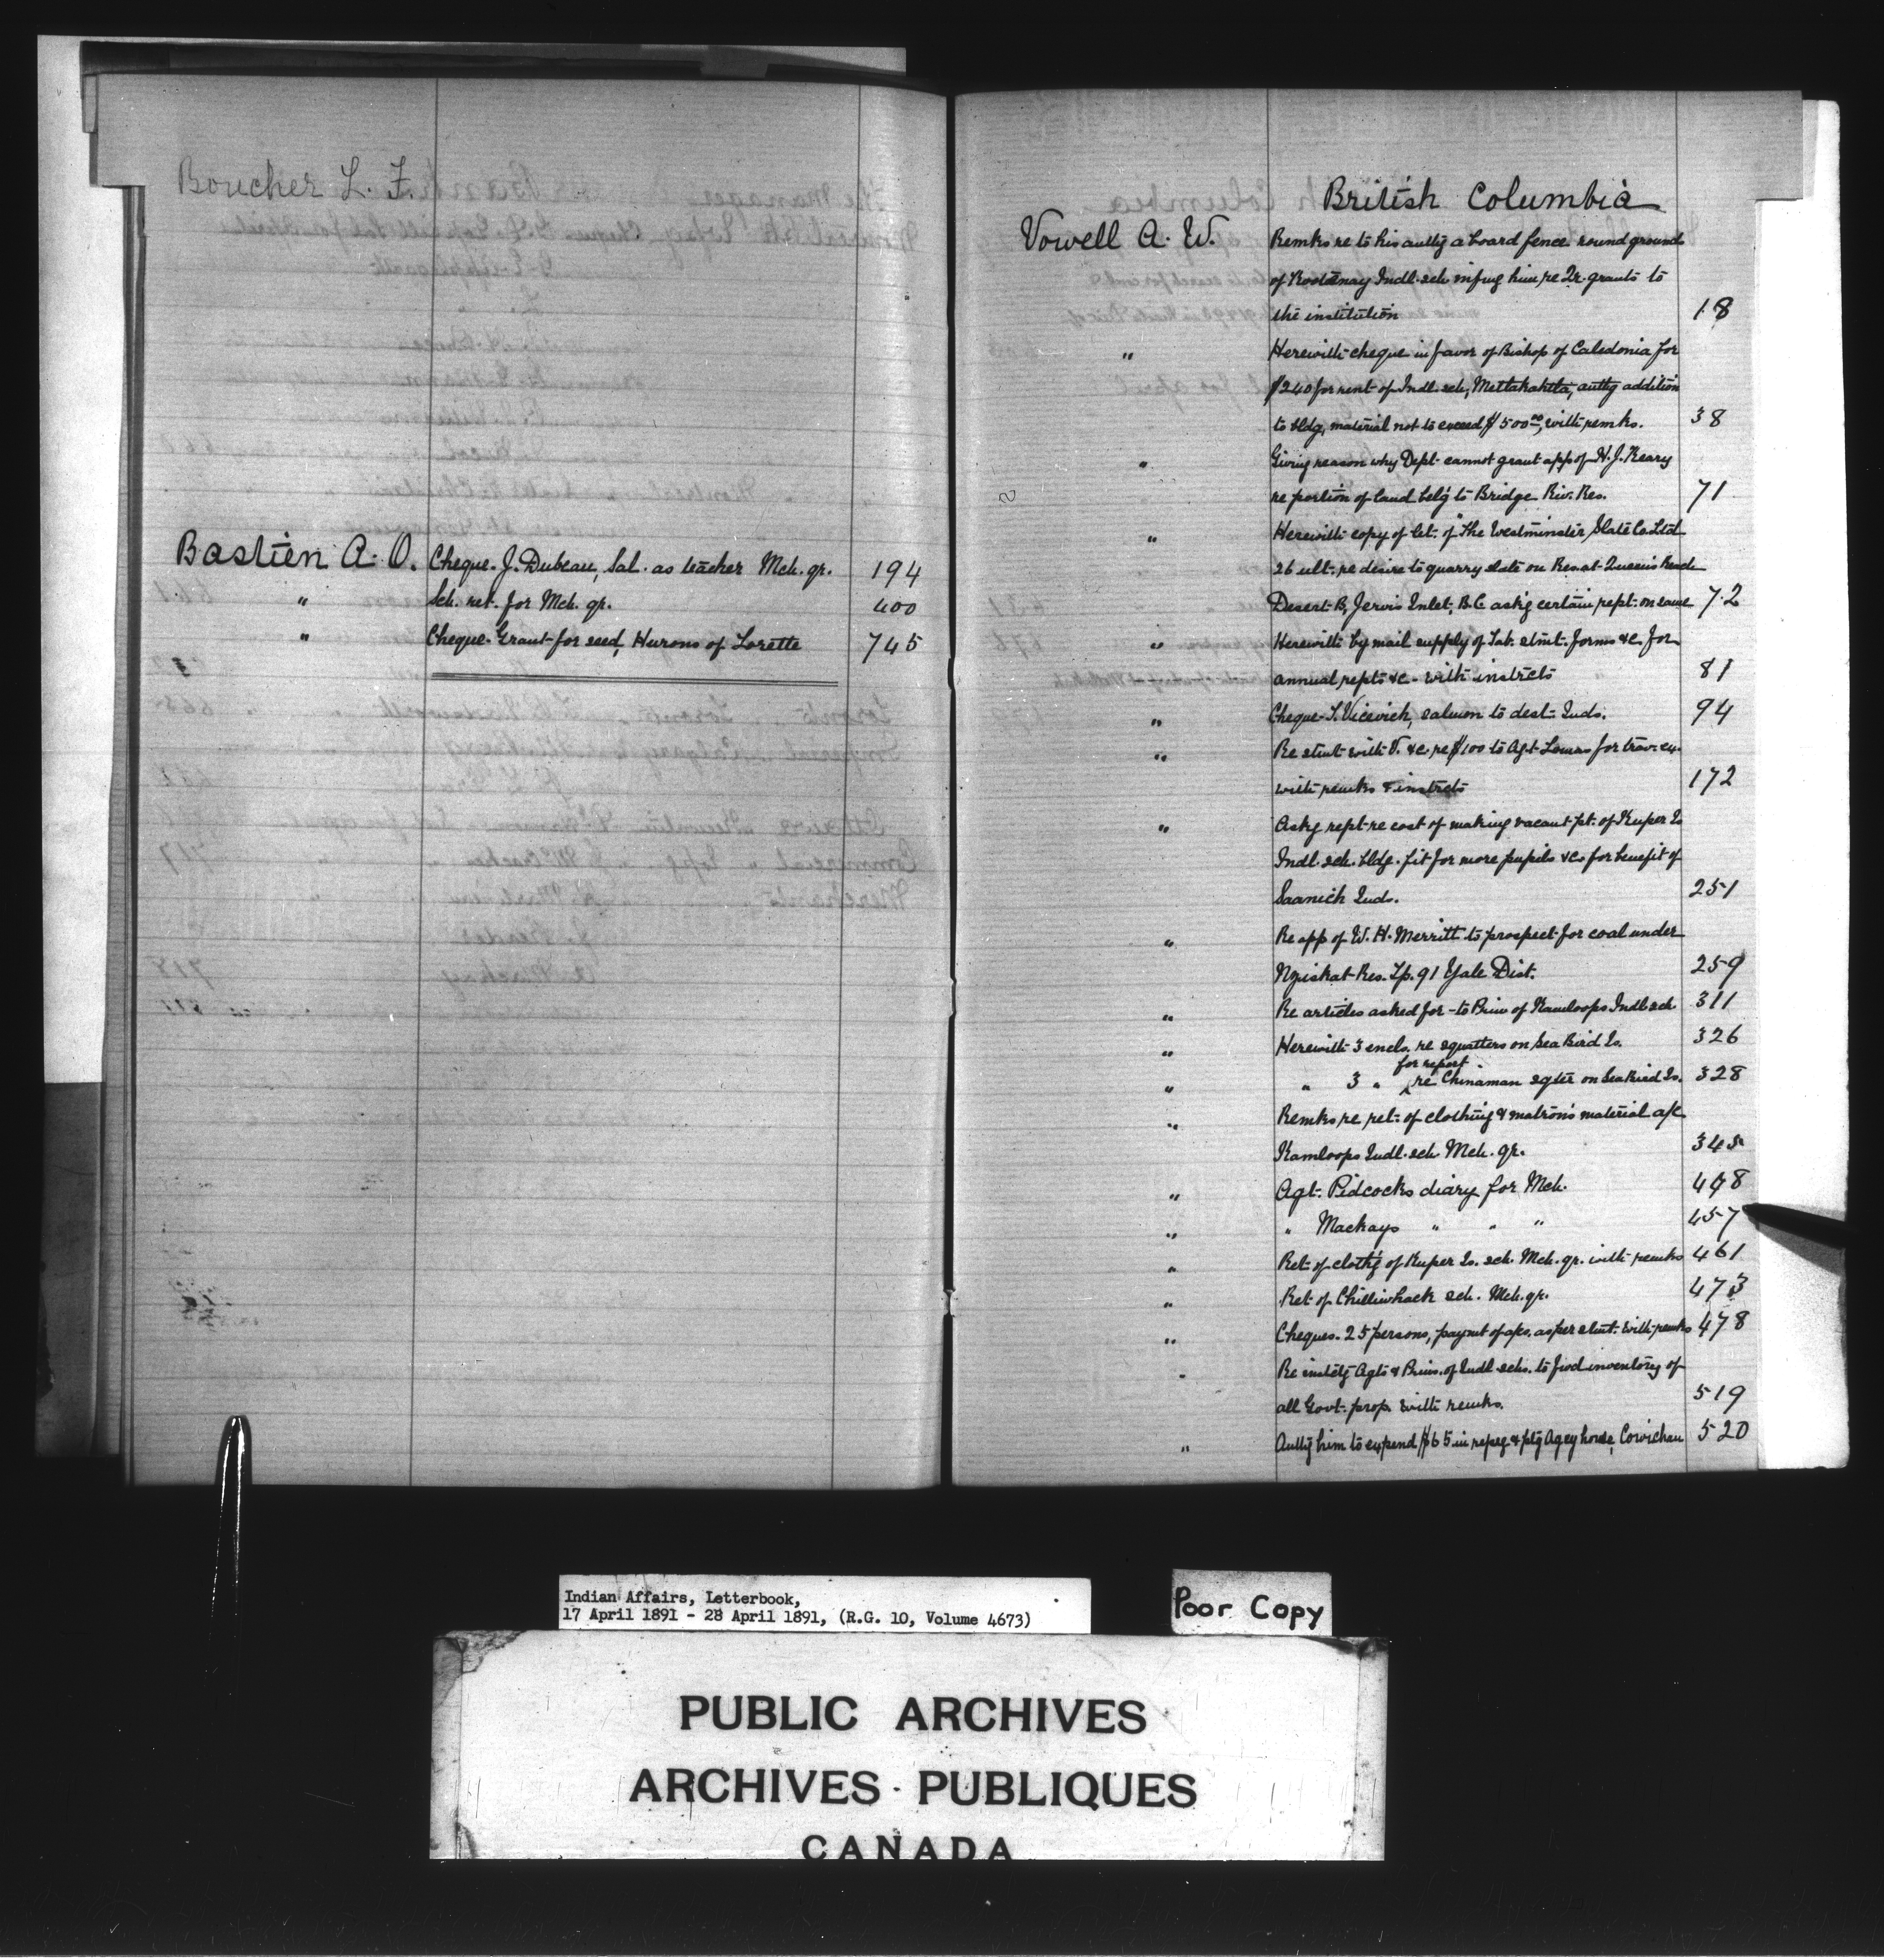 Boucher L. F.
Bastien A. O. Cheque. J. Dubeau, Sal. as teacher Mch. qr. 194
" Sch. ret. for Mch. qr. 400
" Cheque. Grant for seed, Hurons of Lorette 745
British Columbia
Vowell A. W. Remks re to his authg a board fence round grounds
of Kootenay Indl. sch. infmg him re Qr. grants to
the institution 18
" Herewith cheque in favor of Bishop of Caledonia for
$240 for rent of Indl. sch, Metlakahtla, authg addition
to bldg, material not to exceed $500.00, with remks. 38
" Giving reason why Dept. cannot grant app of H. J. Keary
re portion of land belg to Bridge Riv. Res. 71
" Herewith copy of let. of "The Westminster Slate Co. Ltd
26 ult. re desire to quarry slate on Res. at Queen's Reach
Desert B, Jervis Inlet, B.C. askg certain rept. on same 72
" Herewith by mail supply of Tab. stmt. forms &c. for
annual repts &c - with instrcts 81
" Cheque - Vicevich, salmon to dest. Inds. 94
" Re stmt with V. &c. re $100 to Agt. for trav. ex.
with remks & instrcts 172
" Askg rept. re cost of making vacant pt. of Kuper Is
Indl. sch. bldg. fit for more pupils &c. for benefit of
Saanich Inds. 251
" Re app of W. H. Merritt to prospect for coal under
Nziskat Res. Tp. 91 Yale Dist. 259
" Re articles asked for - to Prin of Kamloops Indl sch. 311
" Herewith 3 encls. re squatters on Sea Bird Is. 326
for report
" " 3 " re Chinaman sqter on Sea Bird Is. 328
" Remks re ret. of clothing & matron's material a/c
Kamloops Indl. sch. Mch. qr. 345
" Agt. Pidcocks diary for Mch. 448
" " Mackays " " " 457
" Ret. of clothg of Kuper Is. sch. Mch. qr. with remks 461
" Ret of Chilliwhack sch. Mch. qr. 473
" Cheques. 25 persons, paymt of a/cs. as per stmt. with remks 478
" Re instctg Agts & Prins. of Indl schs. to fwd inventory of
all Govt. prop. with remks. 519
" Authg him to expend $65 in repg & ptg Agcy house, Cowichan 520
Indian Affairs, Letterbook,
17 April 1891 - 28 April 1891, (R.G. 10, Volume 4673)
Poor Copy
PUBLIC ARCHIVES
ARCHIVES PUBLIQUES
CANADA